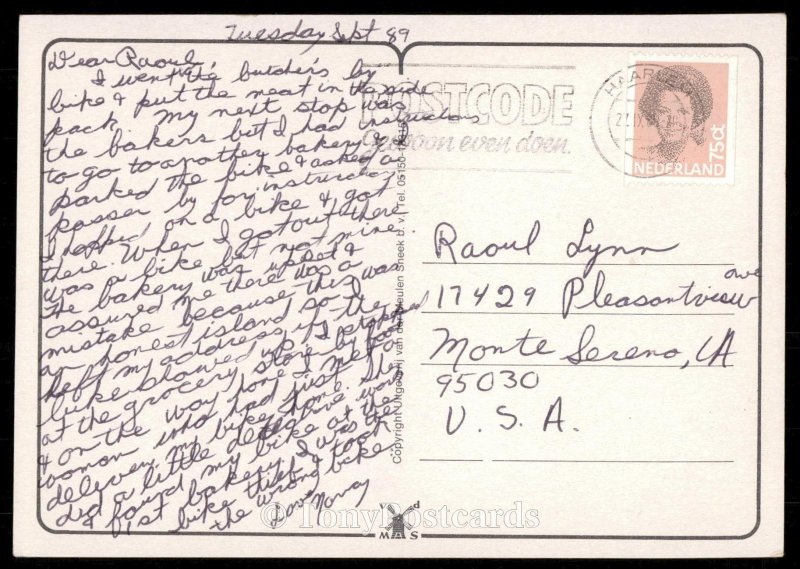 Tuesday Sept 89
Dear Raoul,
I went to the butcher's by
bike & put the meat in the side
pack. My next stop was
the bakers but I had instructions
to go to another bakery. I
parked the bike & asked a
passer by for instructions
I hopped on a bike & got
there. When I got out there
was a bike but not mine.
The bakery was upset &
assured me there was a
mistake because this was
an honest island so I
left my address if the
bike showed up. I stopped
at the grocery store by
& on the way home I met a
woman who had just
delevery my bike home. She
did a little detective work
& found my bike at the
1st bakery. I was the
bike thief & took
the wrong bike
Love Nancy
POSTCODE
Gewoon even doen.
HAARLEM
NEDERLAND
75ct
Raoul Lynn
17429 Pleasantview ave
Monte Sereno, CA
95030
U.S.A.
Copyright Uitgeverij van der Meulen Sneek b.v. Tel. 05150-
v d
MAS
© TonyPostcards